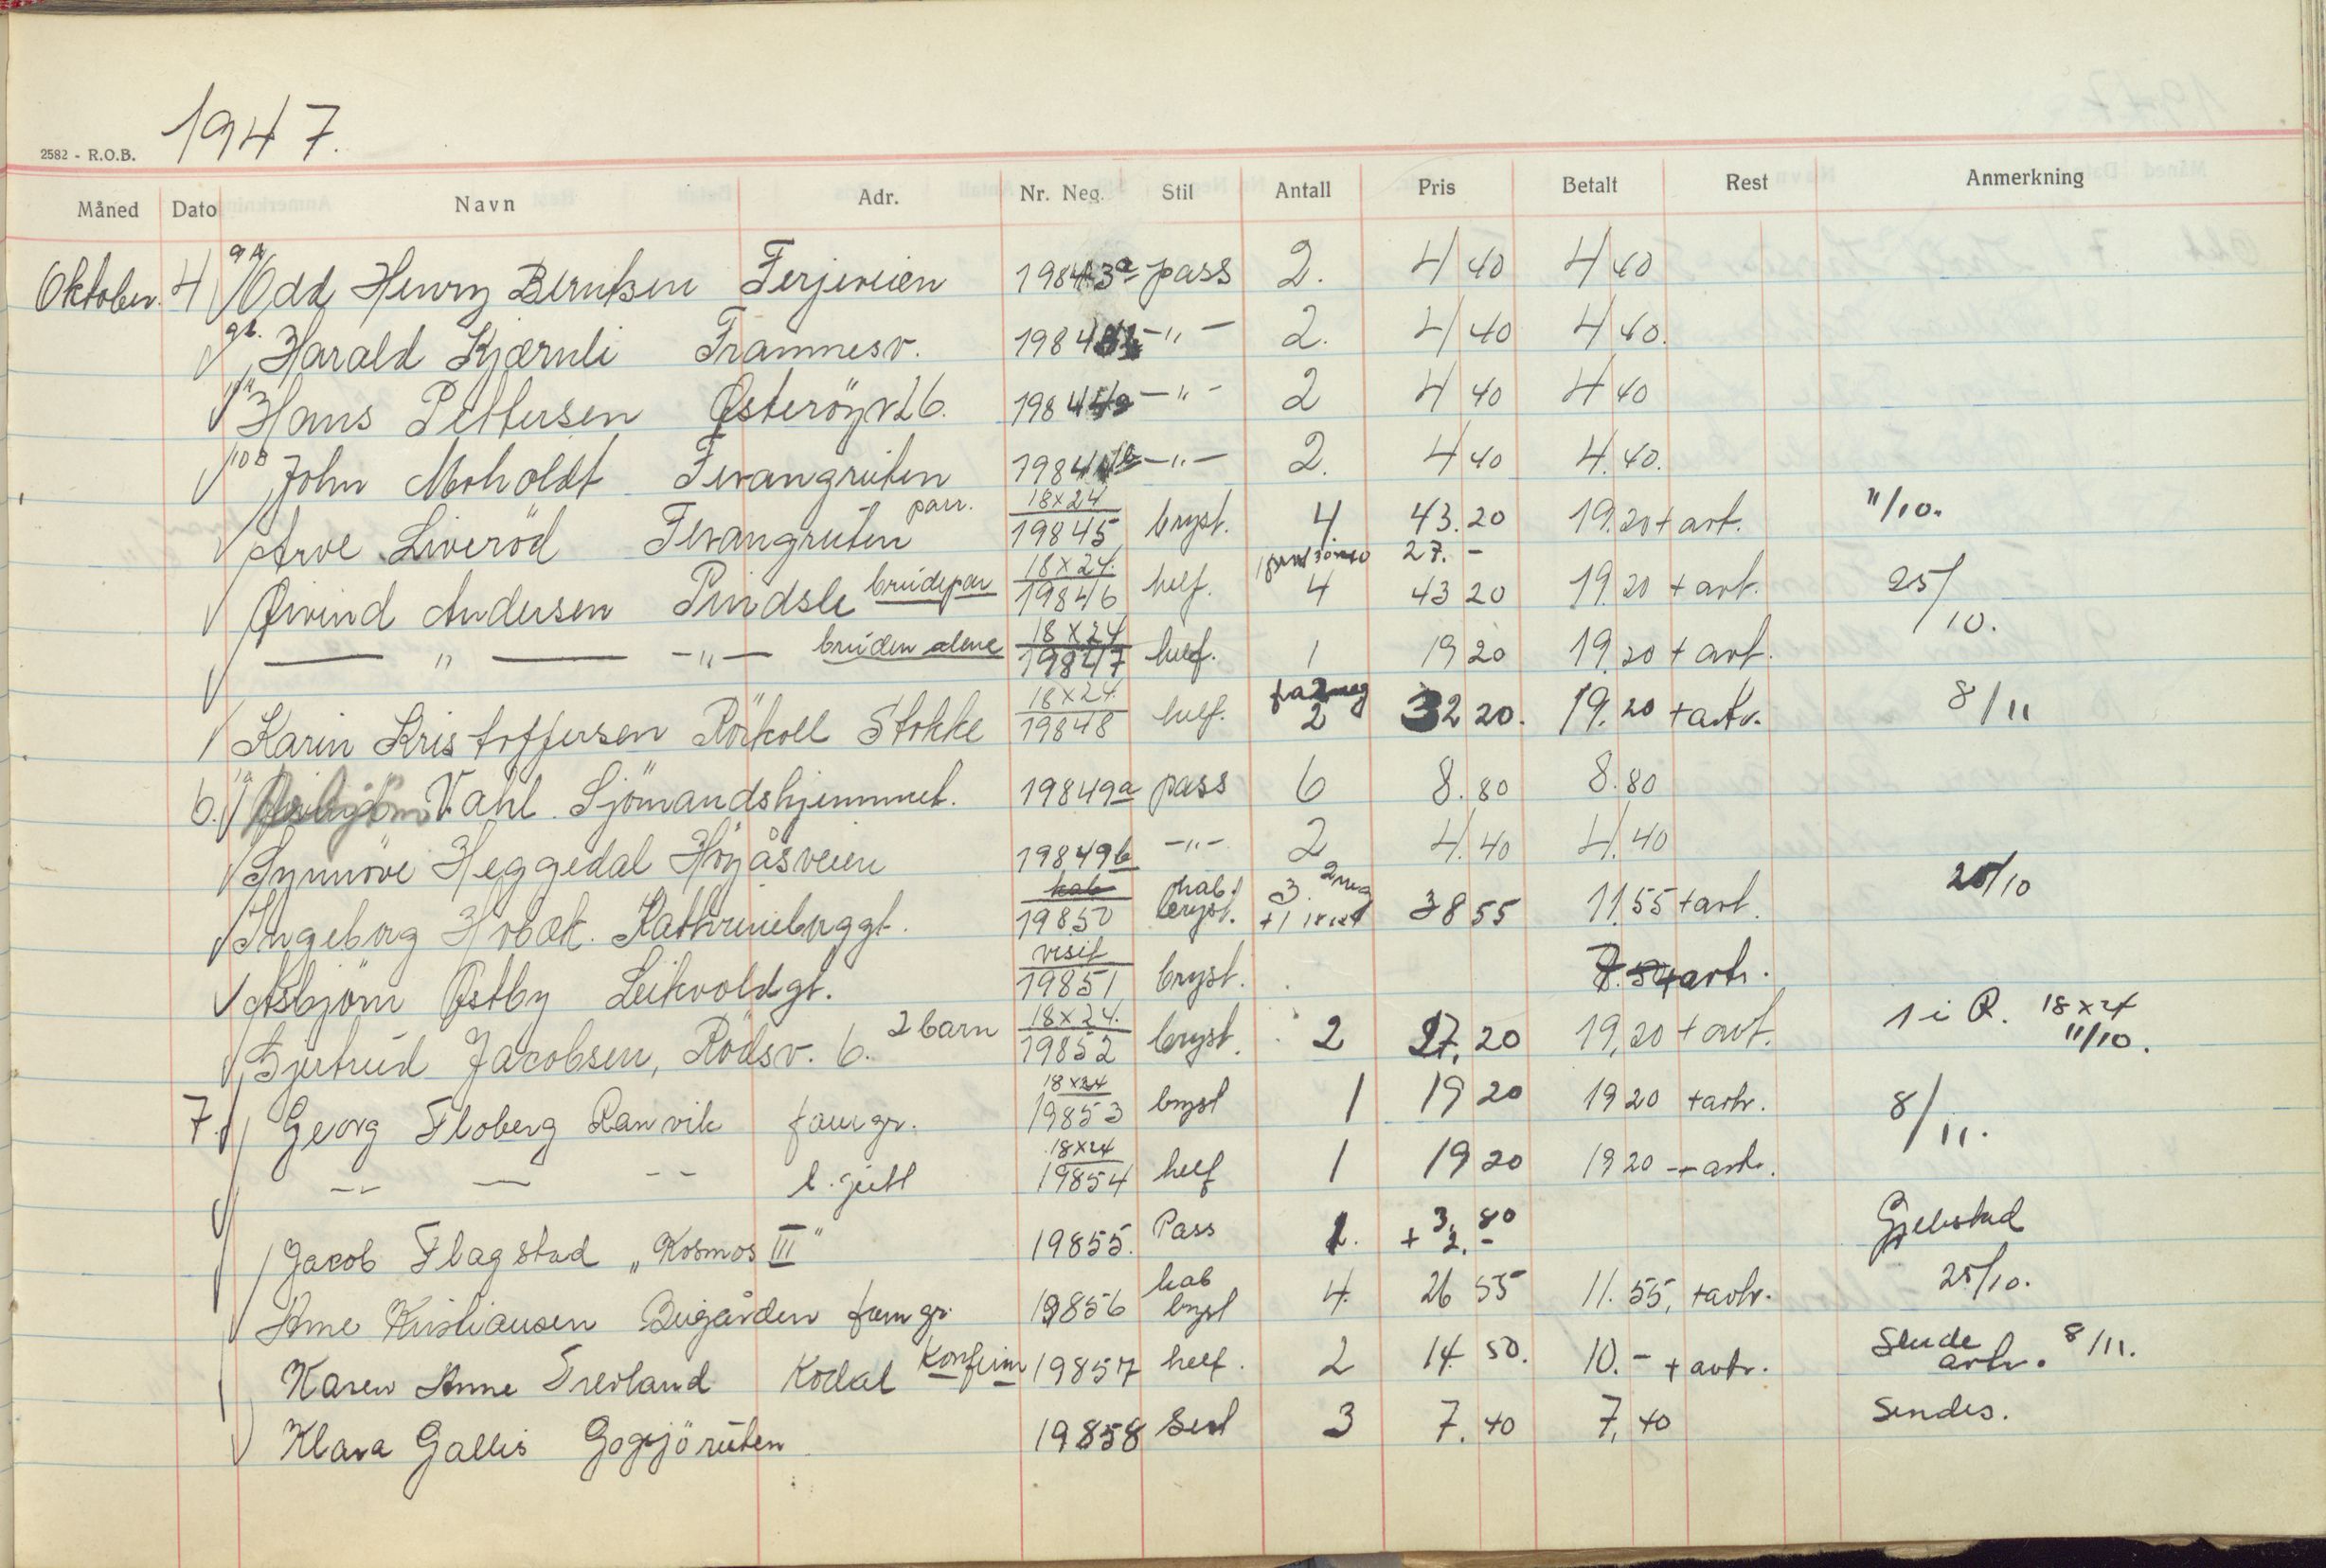 1947.
2582 - R.O.B.
Måned Dato Navn Adr. Nr. Neg. Stil Antall Pris Betalt Rest Anmerkning
Oktober. 4 9a Odd Henry Berntsen Ferjeveien 19843a pass 2. 4 40 4 40
9b. Harald Kjærnli Framnesv. 1984 -"- 2. 4 40 4 40.
Hans Pettersen Østeröyv 26. 1984 -"- 2 4 40 4 40
10b John Moholdt Tevangruten 1984 -"- 2. 4 40 4.40.
Arve Liveröd Tevangruten parr. 18x24 19845 bryst. 4 43.20 19.20 + avt. 11/10.
27.-
Øivind Andersen Pindsle brudepar 18x24. 19846 helf. 4 43 20 19.20 + avt. 25/10.
— " — -"- bruden alene 18x24 19847 helf. 1 19 20 19.20 + avt.
Karin Kristoffersen Rörkoll Stokke 18x24. 19848 helf. fra 2 neg 2 32 20. 19.20 + avtr. 8/11
6. Vahl Sjömandshjemmet. 19849a pass 6 8.80 8.80
Synnöve Heggedal Höyåsveien 19849b -"- 2 4.40 4.40
Ingeborg Kathrineborggt. kab 19850 kab. bryst. 3. 2 neg +1 18x24 38 55 11.55 + avt. 25/10
Asbjörn Østby Leikvoldgt. visit 19851 bryst. avtr.
Gjertrud Jacobsen, Rödsv. 6. 2 barn 18x24. 19852 bryst. 2 27.20 19,20 + avt. 1 i R. 18x24 11/10.
7. Georg Floberg Ranvik famgr. 18x24 19853 bryst 1 19 20 19 20 + avtr. 8/11.
-"- — -- l. gutt 18x24 19854 helf 1 19 20 19 20 + avtr.
Jacob Flagstad „Kosmos III" 19855. Pass 1. 3.80 + 2.- Gjelstad
Arne Kristiansen Buigården famgr. 19856 kab bryst 4. 26 55 11.55, + avtr. 25/10.
Karen Anne Trevland Kodal Konfirm 19857 helf. 2 14.50. 10.- + avtr. Sende avtr. 8/11.
Klara Gallis Gogsjöruten 19858 Serl 3 7.40 7,40 Sendes.